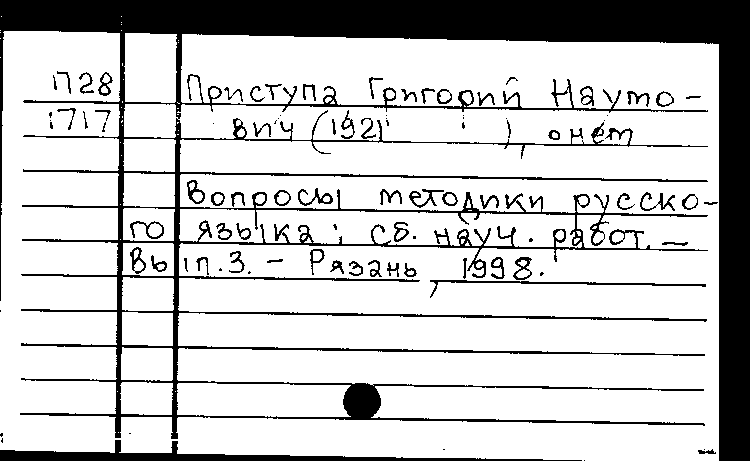 П28 Приступа Григорий Наумо-
1717 вич (1921 ), о нём
Вопросы методики русско-
го языка: сб. науч. работ. —
Вып.3. - Рязань, 1998.